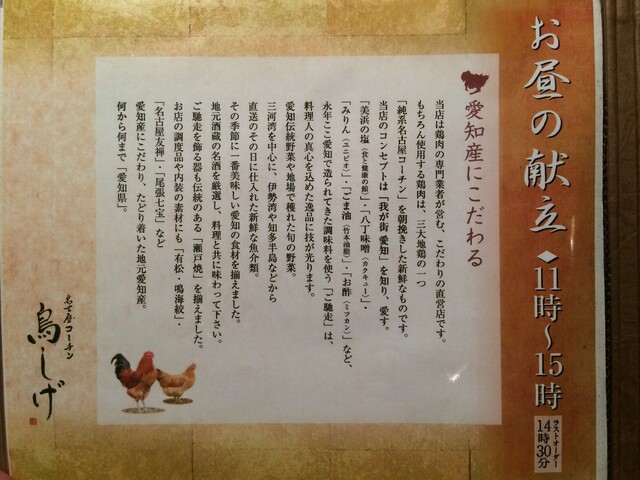 お昼の献立◆11時～15時
ラストオーダー
14時30分
愛知産にこだわる
当店は鶏肉の専門業者が営む、こだわりの直営店です。
もちろん使用する鶏肉は、三大地鶏の一つ
「純系名古屋コーチン」を朝挽きした新鮮なものです。
当店のコンセプトは「我が街 愛知」を知り、愛す。
「美浜の塩（食と健康の館）」・「八丁味噌（カクキュー）」・
「みりん（ユニビオ）」・「ごま油（竹本油脂）」・「お酢（ミツカン）」など、
永年ここ愛知で造られてきた調味料を使う「ご馳走」は、
料理人の真心を込めた逸品に技が光ります。
愛知伝統野菜や地場で穫れた旬の野菜。
三河湾を中心に、伊勢湾や知多半島などから
直送のその日に仕入れた新鮮な魚介類。
その季節に一番美味しい愛知の食材を揃えました。
地元酒蔵の名酒を厳選し、料理と共に味わって下さい。
ご馳走を飾る器も伝統のある「瀬戸焼」を揃えました。
お店の調度品や内装の素材にも「有松・鳴海絞」・
「名古屋友禅」・「尾張七宝」など
愛知産にこだわり、たどり着いた地元愛知産。
何から何まで「愛知県」。
名古屋コーチン
鳥しげ